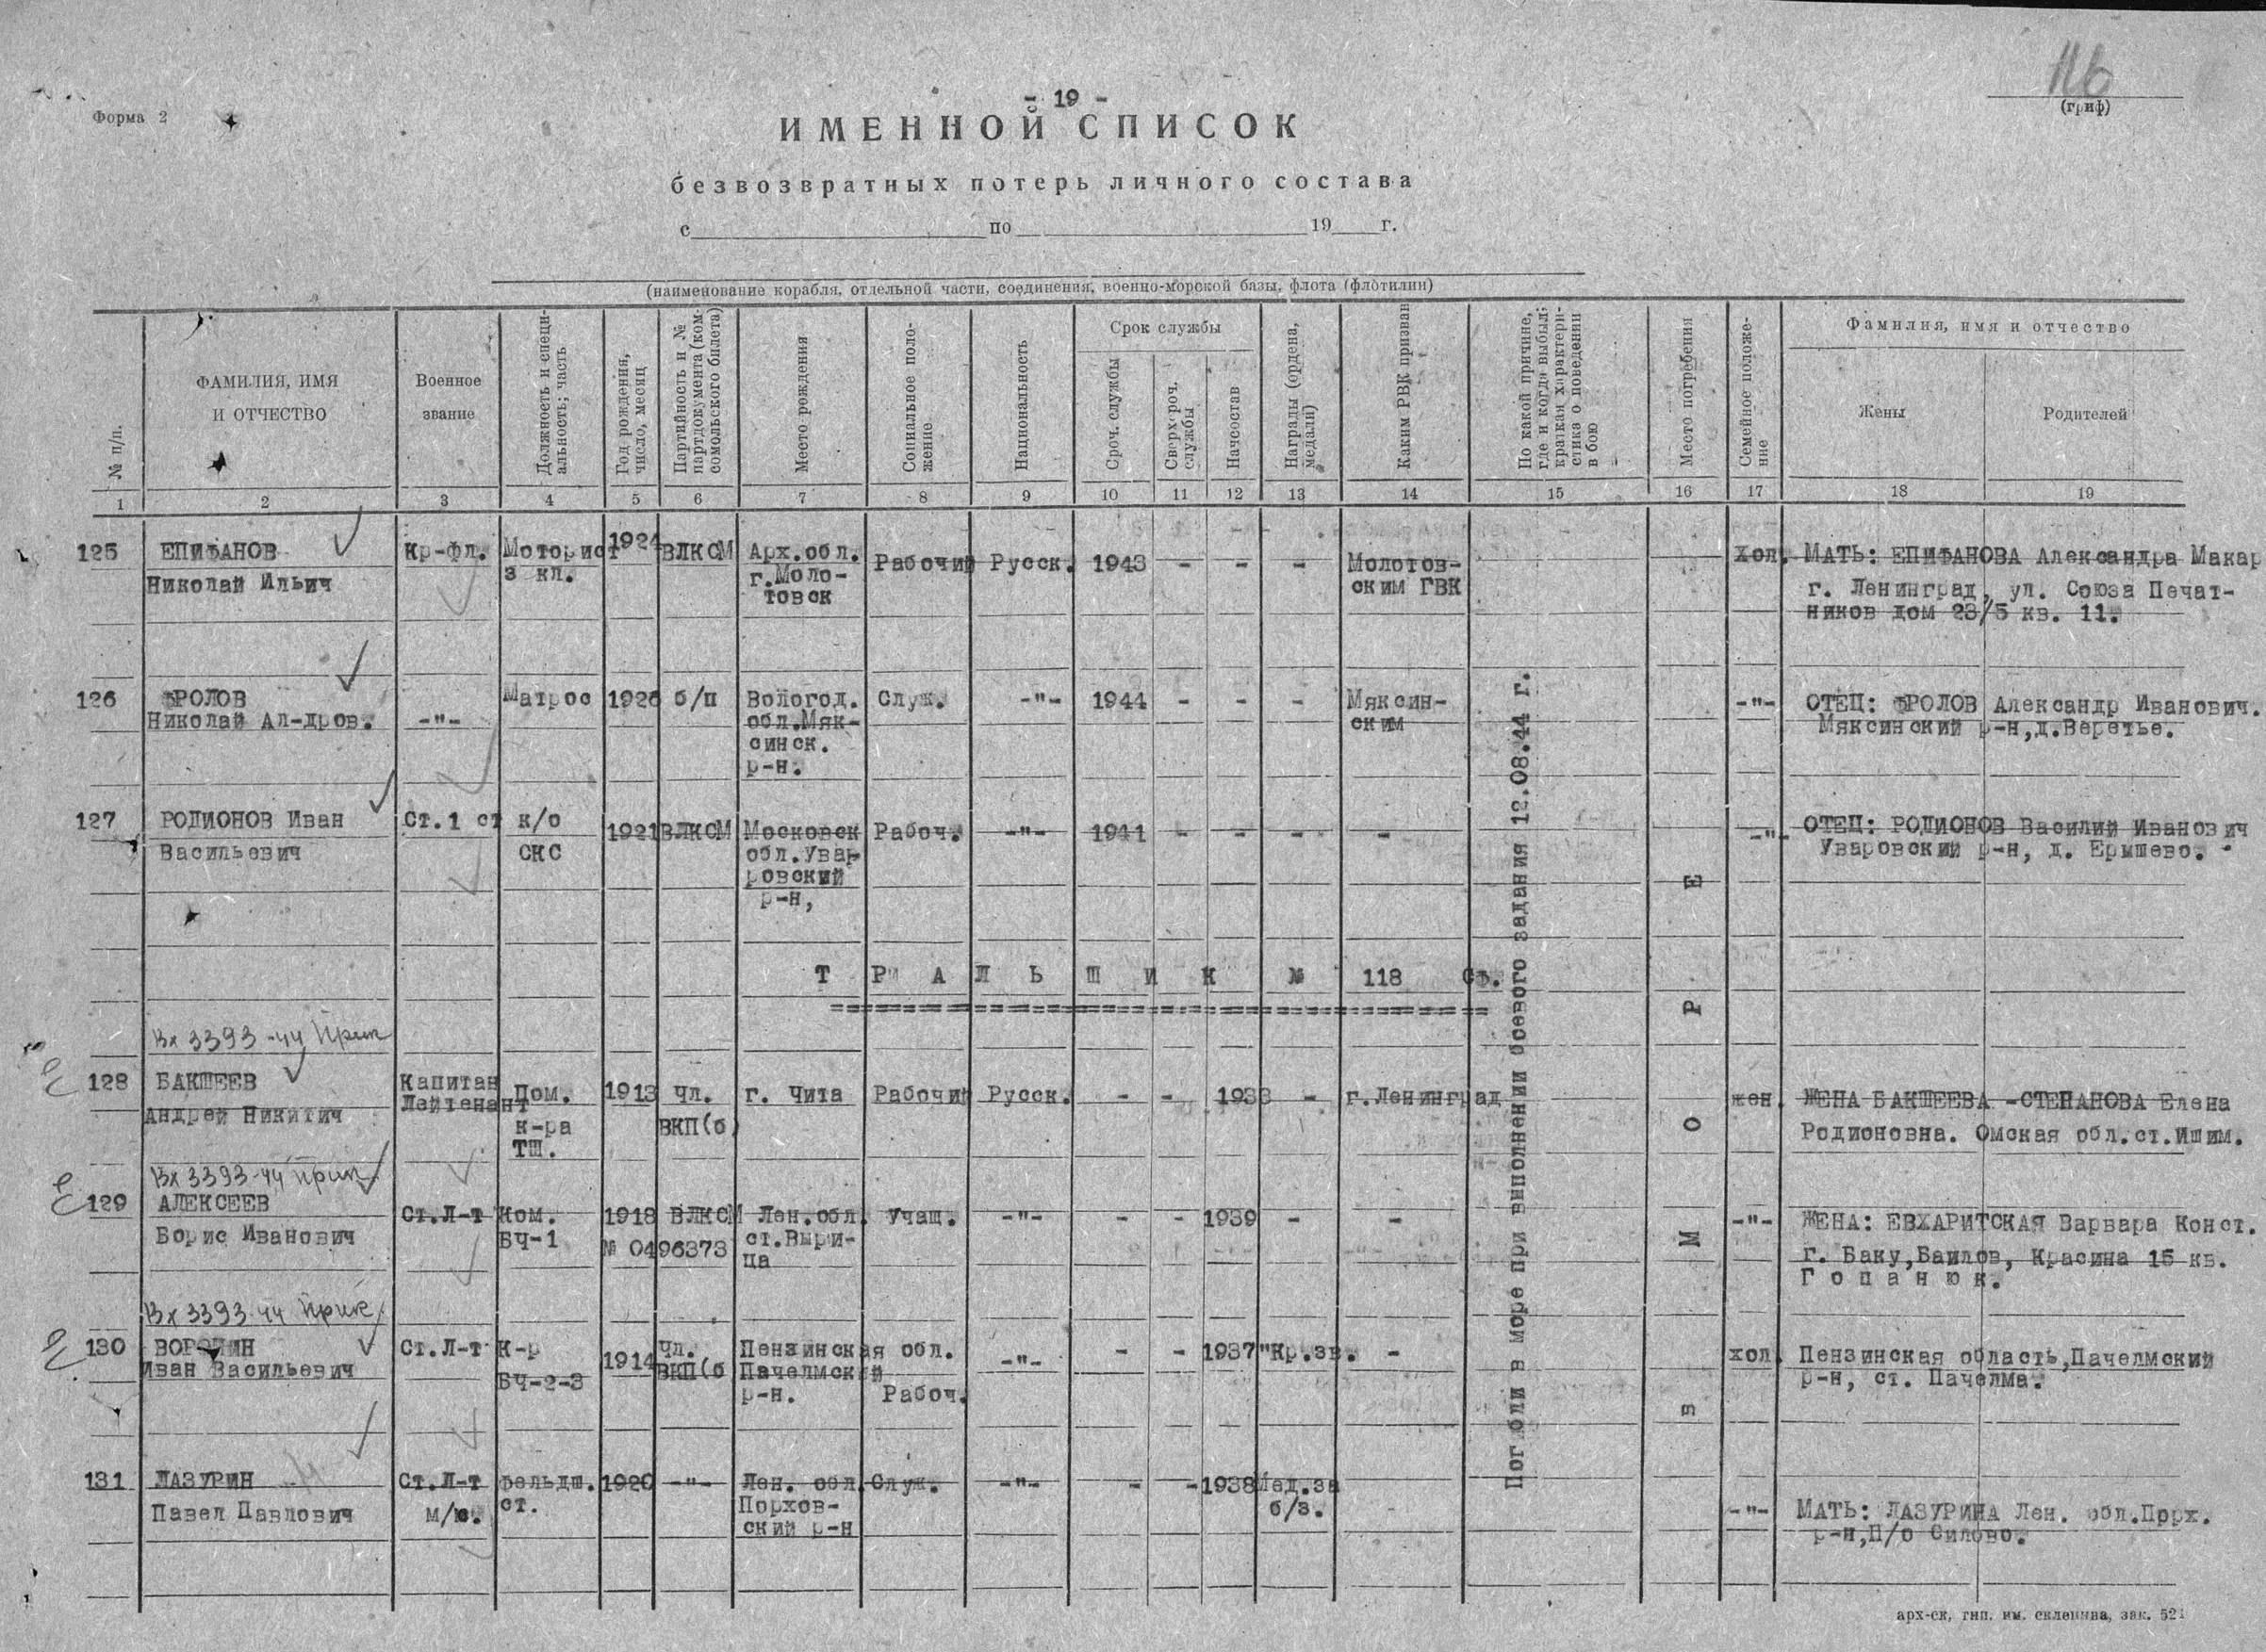 116
(гриф)
Форма 2
- 19 -
ИМЕННОЙ СПИСОК
безвозвратных потерь личного состава
с по 19 г.
(наименование корабля, отдельной части, соединения, военно-морской базы, флота (флотилии)
№ п/п.
ФАМИЛИЯ, ИМЯ
И ОТЧЕСТВО
Военное
звание
Должность и специ-
альность; часть
Год рождения,
число, месяц
Партийность и №
партдокумента (ком-
сомольского билета)
Место рождения
Социальное поло-
жение
Национальность
Срок службы
Сроч. службы
Сверхсроч.
службы
Начсостав
Награды (ордена,
медали)
Каким РВК призван
По какой причине,
где и когда выбыл;
краткая характери-
стика о поведении
в бою
Место погребения
Семейное положе-
ние
Фамилия, имя и отчество
Жены
Родителей
1 2 3 4 5 6 7 8 9 10 11 12 13 14 15 16 17 18 19
125 ЕПИФАНОВ Кр-фл. Моторист 1924 ВЛКСМ Арх.обл. Рабочий Русск. 1943 - - - Молотов- Хол. МАТЬ: ЕПИФАНОВА Александра Макар
Николай Ильич 3 кл. г.Моло- ским ГВК г. Ленинград, ул. Союза Печат-
товск ников дом 23/5 кв. 11.
126 ФРОЛОВ Матрос 1926 б/п Вологод. Служ. -"- 1944 - - - Мяксин- -"- ОТЕЦ: ФРОЛОВ Александр Иванович.
Николай Ал-дров. -"- обл.Мяк- ским Мяксинский р-н,д.Веретье.
синск.
р-н.
127 РОДИОНОВ Иван Ст.1 ст к/о 1921 ВЛКСМ Московск Рабоч. -"- 1941 - - - - -"- ОТЕЦ: РОДИОНОВ Василий Иванович
Васильевич СКС обл.Увар Уваровский р-н, д. Ермшево.
ровский
р-н,
ТРАЛЬШИК № 118 СФ.
==============================
Вх 3393-44 Прик
128 БАКШЕЕВ Капитан Пом. 1913 Чл. г. Чита Рабочий Русск. - - 1933 - г.Ленинград жен. ЖЕНА БАКШЕЕВА -СТЕПАНОВА Елена
Андрей Никитич Лейтенант к-ра ВКП(б) Родионовна. Омская обл.ст.Ишим.
ТЩ.
Вх 3393-44 прик
129 АЛЕКСЕЕВ Ст.Л-т Ком. 1918 ВЛКСМ Лен.обл. Учащ. -"- - - 1939 - - -"- ЖЕНА: ЕВХАРИТСКАЯ Варвара Конст.
Борис Иванович БЧ-1 № 0496373 ст.Выри- г. Баку,Баилов, Красина 15 кв.
ца Гопанюк.
Вх 3393-44 Прик
130 ВОРОНИН Ст.Л-т К-р 1914 Чл. Пензинская обл. -"- - - 1937 "Кр.зв. - хол. Пензинская область,Пачелмский
Иван Васильевич БЧ-2-3 ВКП(б Пачелмский р-н, ст. Пачелма.
р-н. Рабоч.
131 ЛАЗУРИН Ст.Л-т фельдш. 1920 -"- Лен. обл. Служ. -"- - - 1938 Мед.за
Павел Павлович м/с. ст. Порхов- б/з. -"- МАТЬ: ЛАЗУРИНА Лен. обл.Порх.
ский р-н р-н,П/о Силово.
Погибли в море при выполнении боевого задания 12.08.44 г.
В МОРЕ
арх-ск, тип. им. склепина, зак. 521